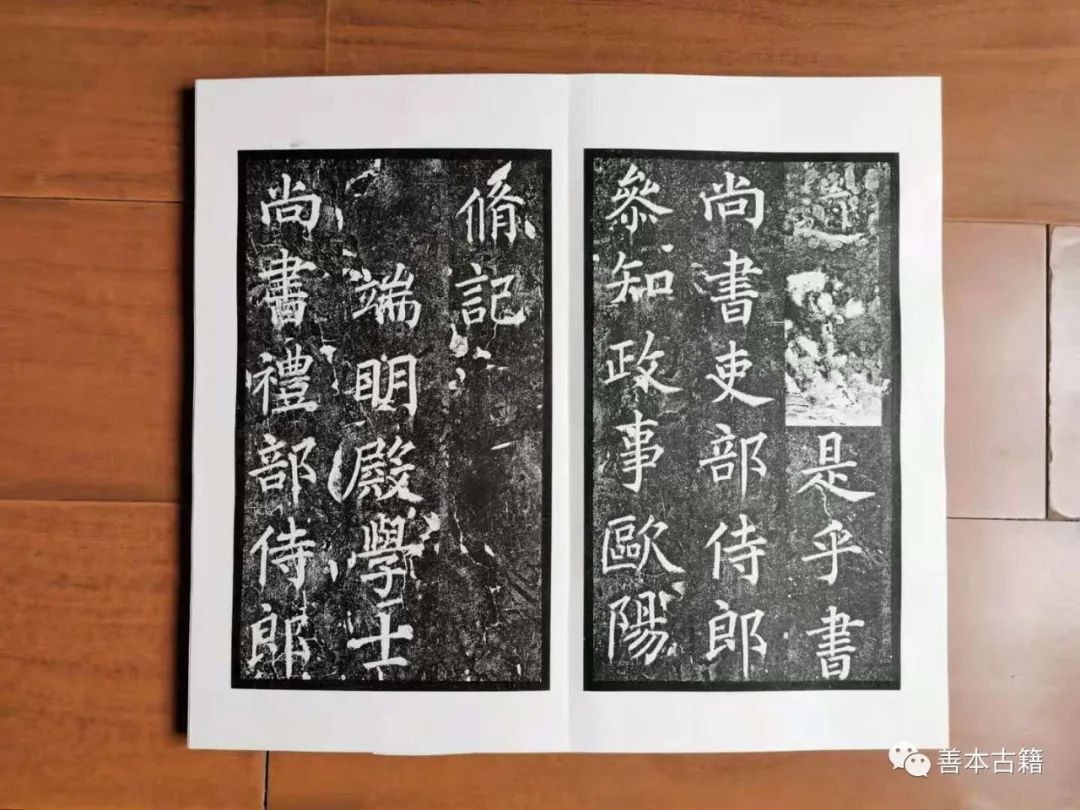 是乎書
尚書吏部侍郎
叅知政事歐陽
脩記
端明殿學士
尚書禮部侍郎
善本古籍